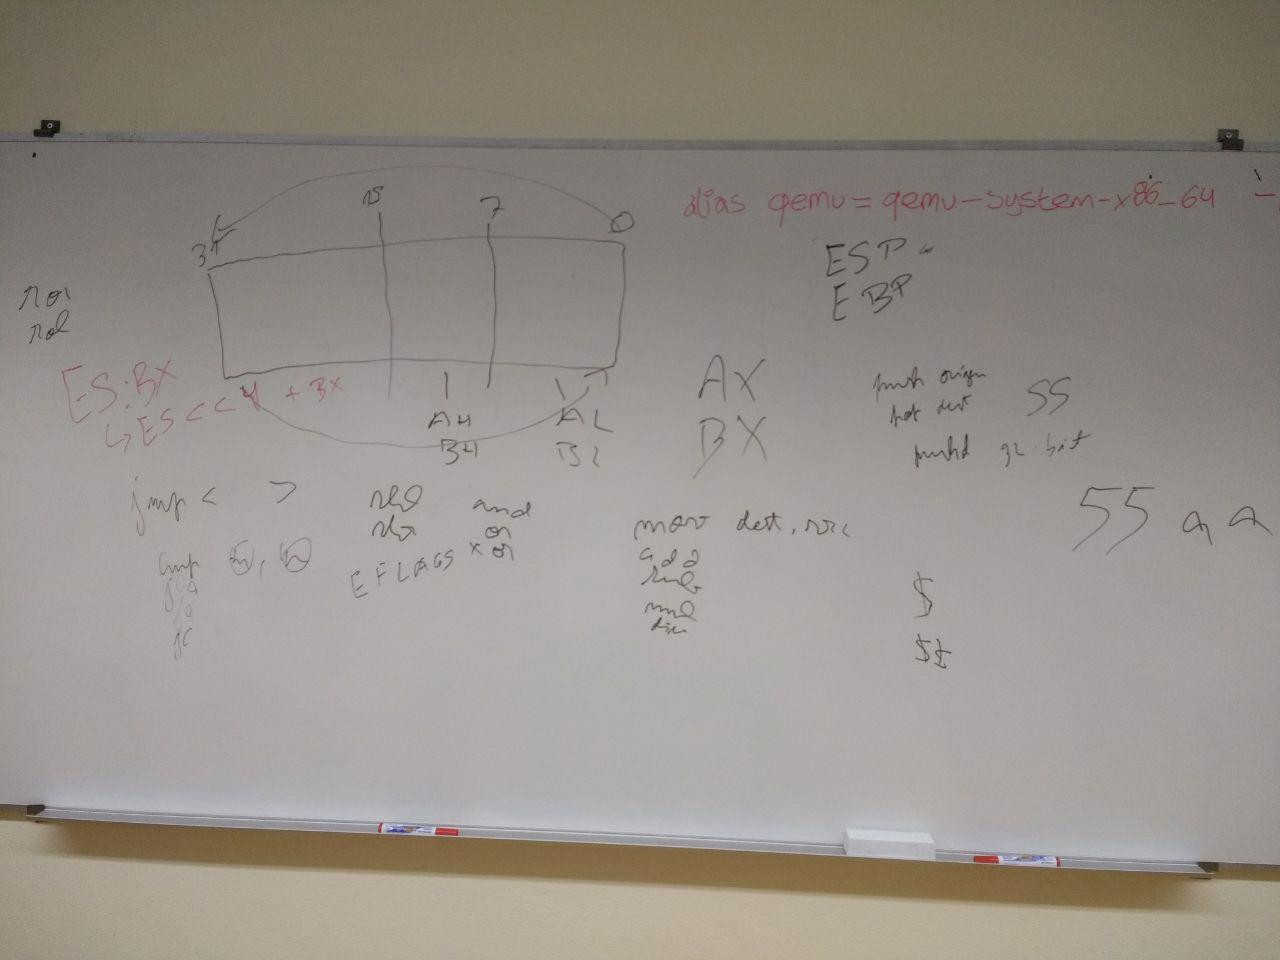 15
7
0
31
alias qemu = qemu-system-x86_64 -
ESP
EBP
ror
rol
ES:BX
↳ ES << 4 + BX
AH
AL
BH
BL
AX
BX
push origen
pot dest
SS
pushd 32 bit
jmp < >
shl and
shr or
EFLAGS xor
cmp
je
jc
mov dest, src
add
sub
mul
div
55 aa
$
$$